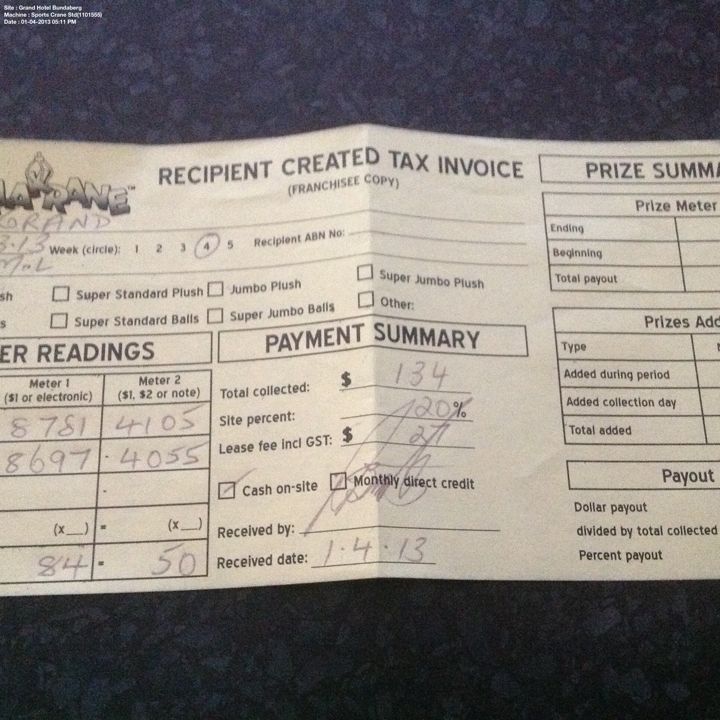 Site : Grand Hotel Bundaberg
Machine : Sports Crane Std(1101555)
Date : 01-04-2013 05:11 PM
RECIPIENT CREATED TAX INVOICE
(FRANCHISEE COPY)
GRAND
Week (circle): 1 2 3 4 5 Recipient ABN No:
sh Super Standard Plush Jumbo Plush Super Jumbo Plush
s Super Standard Balls Super Jumbo Balls Other:
ER READINGS
Meter 1 Meter 2
($1 or electronic) ($1, $2 or note)
8781 4105
8697 4055
(x__) = (x__)
84 = 50
PAYMENT SUMMARY
Total collected: $ 134
Site percent: 20%
Lease fee incl GST: $ 27
Cash on-site Monthly direct credit
Received by:
Received date: 1.4.13
PRIZE SUMMA
Prize Meter
Ending
Beginning
Total payout
Prizes Add
Type
Added during period
Added collection day
Total added
Payout
Dollar payout
divided by total collected
Percent payout